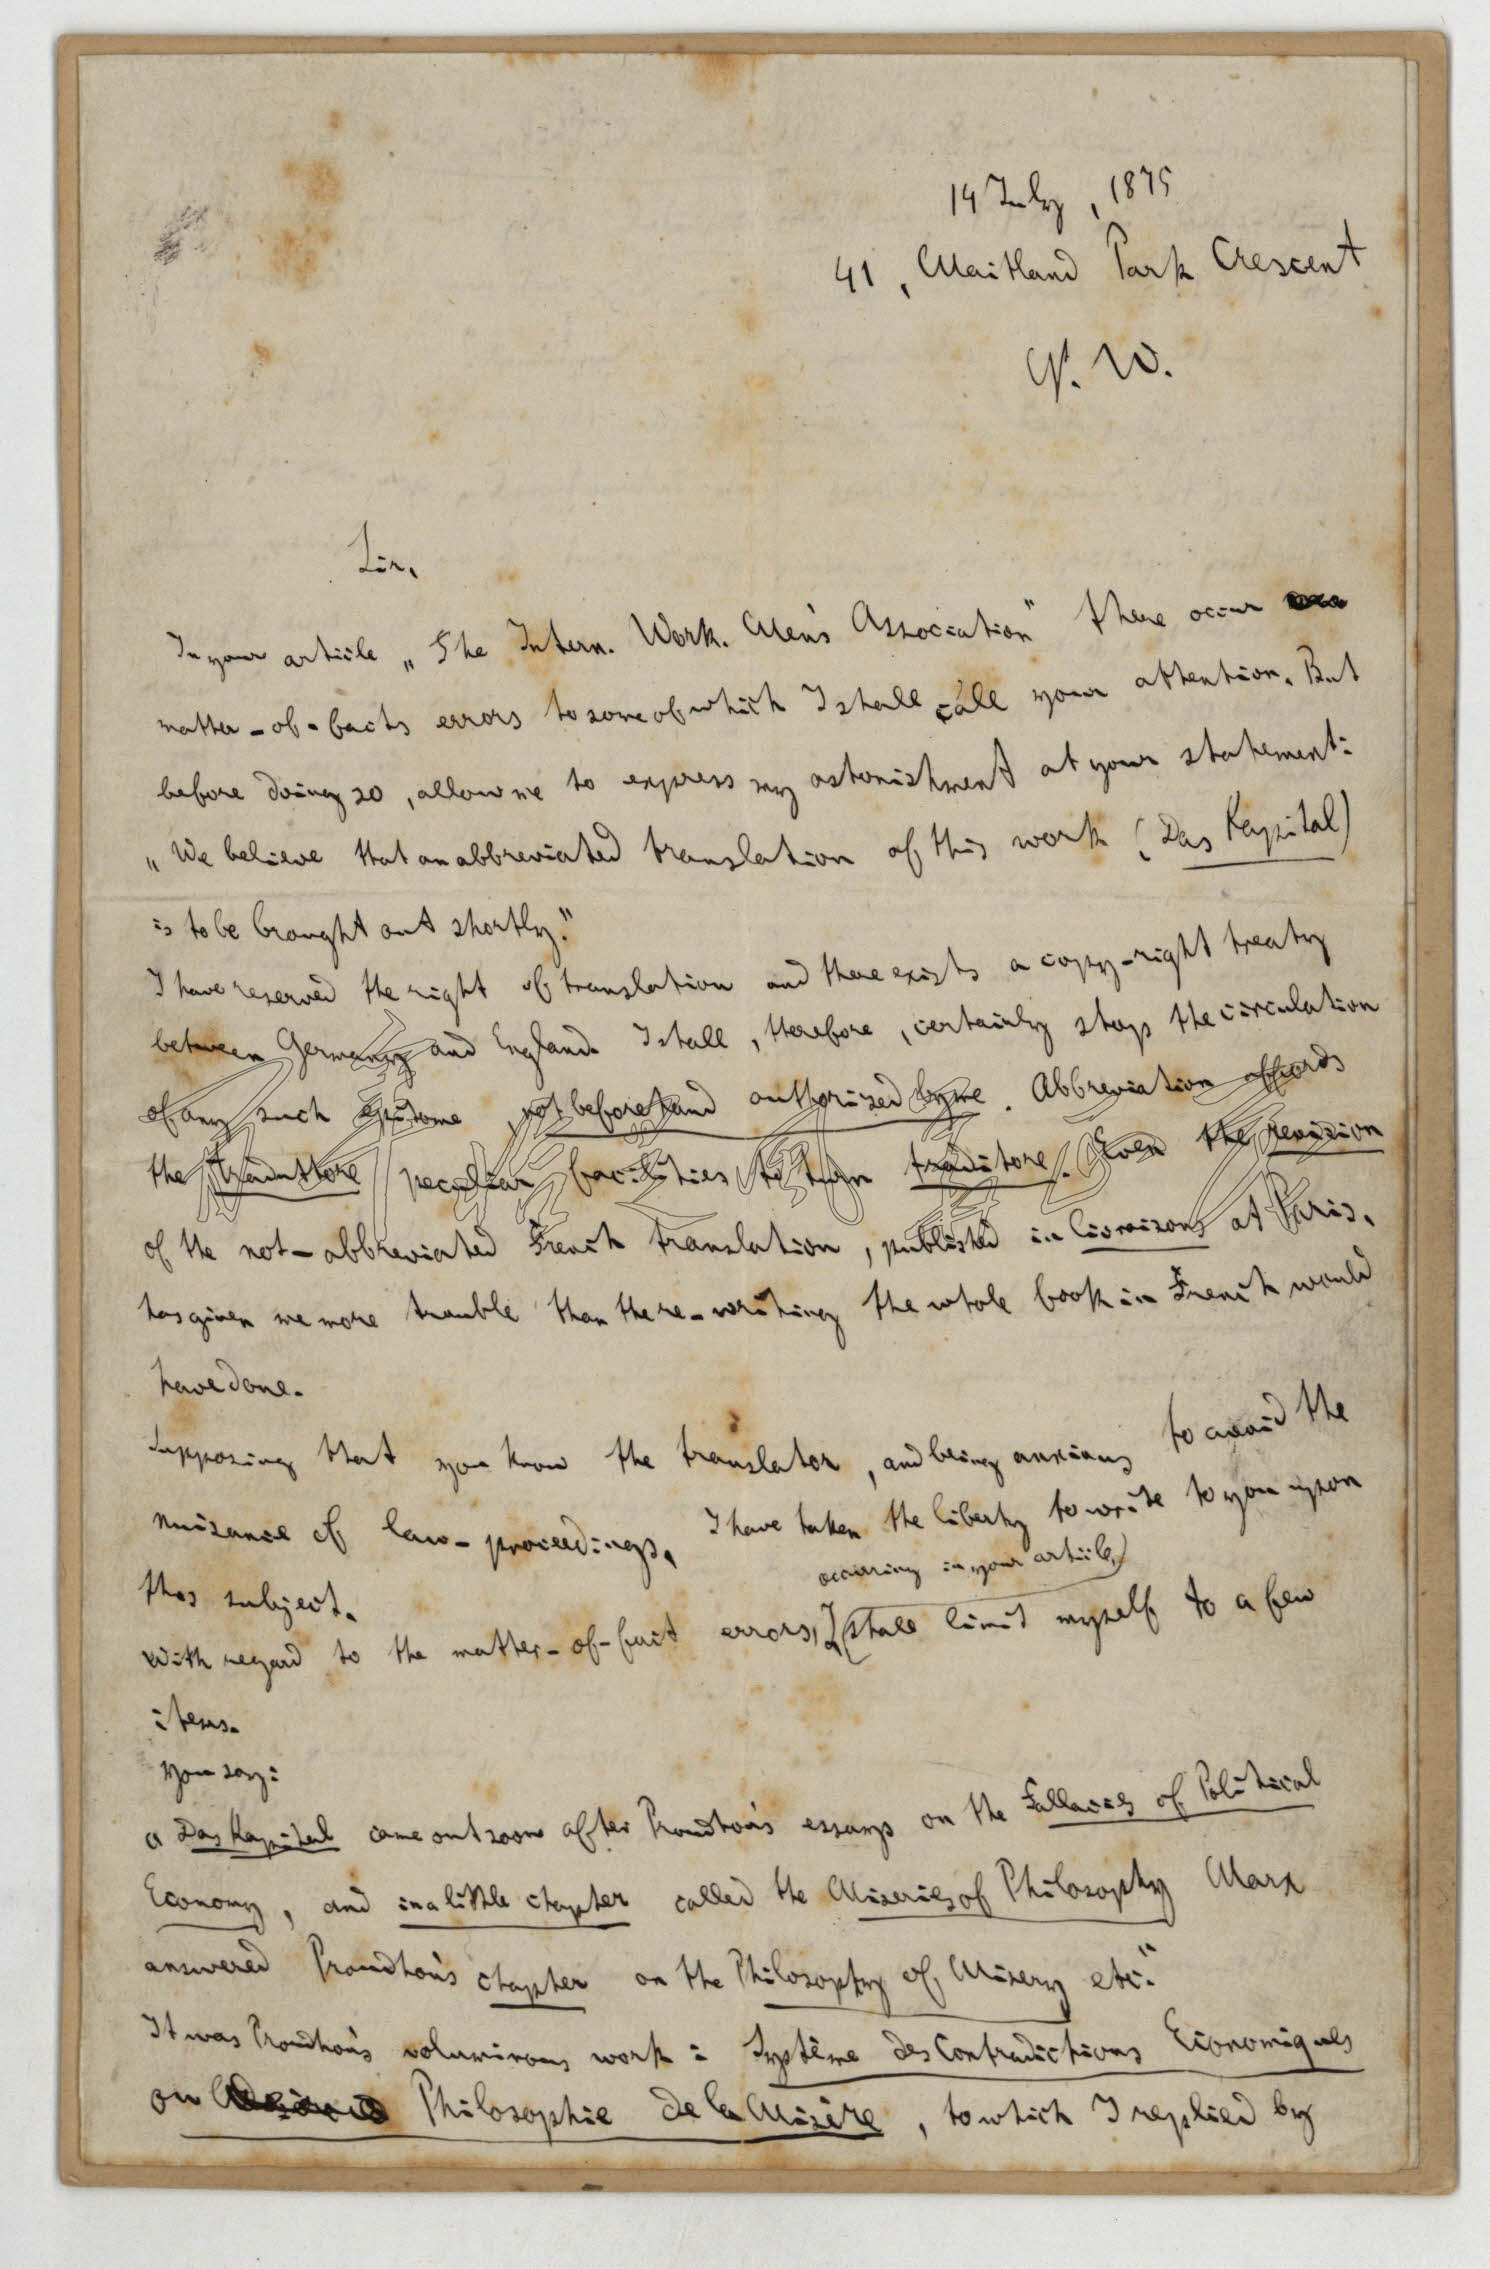 14 July, 1875
41, Maitland Park Crescent
N. W.
Sir,
In your article „The Intern. Work. Men's Association" there occur
matter-of-facts errors to some of which I shall call your attention. But
before doing so, allow me to express my astonishment at your statement:
„We believe that an abbreviated translation of this work (Das Kapital)
is to be brought out shortly."
I have reserved the right of translation and there exists a copy-right treaty
between Germany and England. I shall, therefore, certainly stop the circulation
of any such epitome not beforehand authorized by me. Abbreviation affords
the traduttore peculiar facilities to turn traditore. Even the revision
of the not-abbreviated French translation, published in livraisons at Paris,
has given me more trouble than the re-writing the whole book in French would
have done.
Supposing that you know the translator, and being anxious to avoid the
nuisance of law-proceedings, I have taken the liberty to write to you upon
this subject.
occurring in your article,
With regard to the matter-of-fact errors, I shall limit myself to a few
items.
You say:
Das Kapital came out soon after Proudhon's essays on the Fallacies of Political
Economy, and in a little chapter called the Miseries of Philosophy Marx
answered Proudhon's chapter on the Philosophy of Misery etc."
It was Proudhon's voluminous work: Système des Contradictions Économiques
ou Philosophie de la Misère, to which I replied by